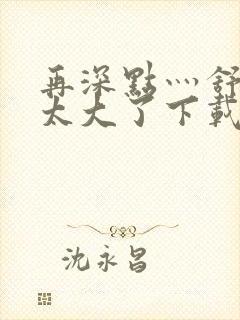 再深點灬舒
太大了下載
沈永昌